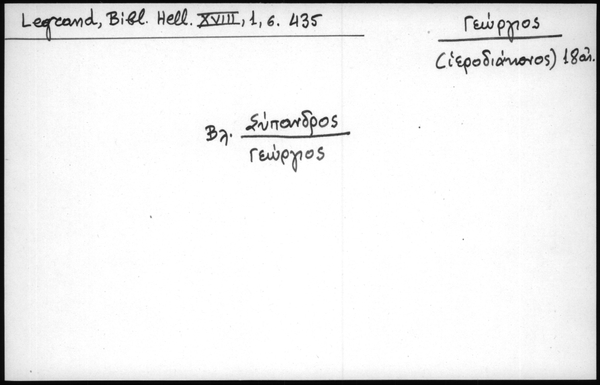 Legrand, Bibl. Hell. XVIII, 1, σ. 435
Γεώργιος
(ἱεροδιάκονος) 18 αἰ.
Βλ. Σύπανδρος
Γεώργιος